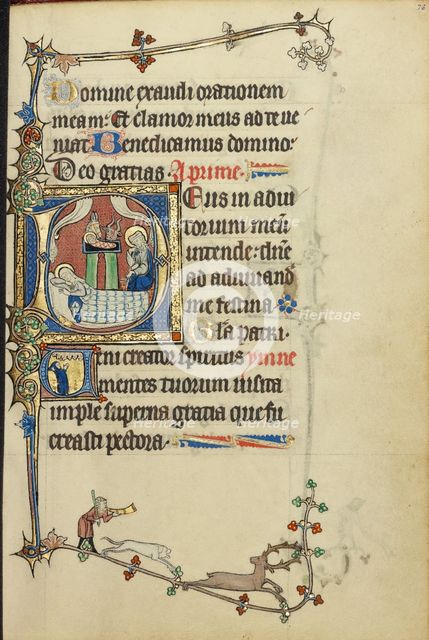 76
Domine exaudi orationem
meam. Et clamor meus ad te ue
niat. Benedicamus domino.
Deo gratias. A prime.
Deus in adiu
torium meū
intende. dn̄e
ad adiuuand
me festina
Gl̄a patri.
Ueni creator spiritus ymne
mentes tuorum uisita
imple superna gratia que tu
creasti pectora.
Heritage
Heritage
Heritage
Heritage